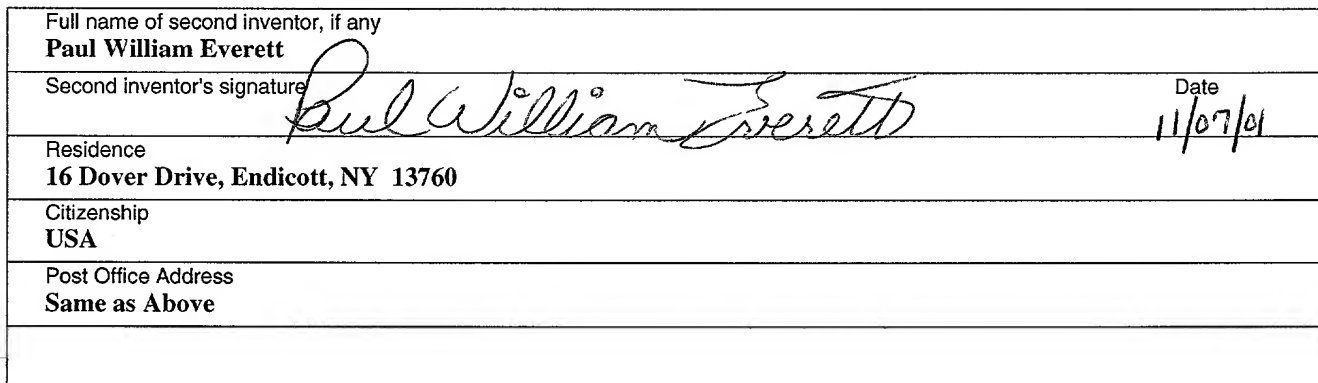 Full name of second inventor, if any
Paul William Everett
Second inventor's signature Paul William Everett Date
11/07/01
Residence
16 Dover Drive, Endicott, NY 13760
Citizenship
USA
Post Office Address
Same as Above